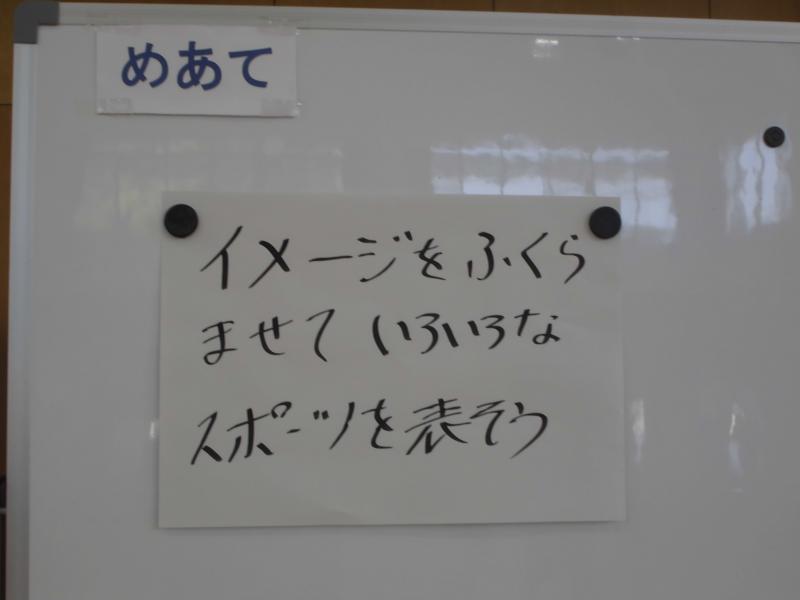 めあて
イメージをふくら
ませて いろいろな
スポーツを表そう